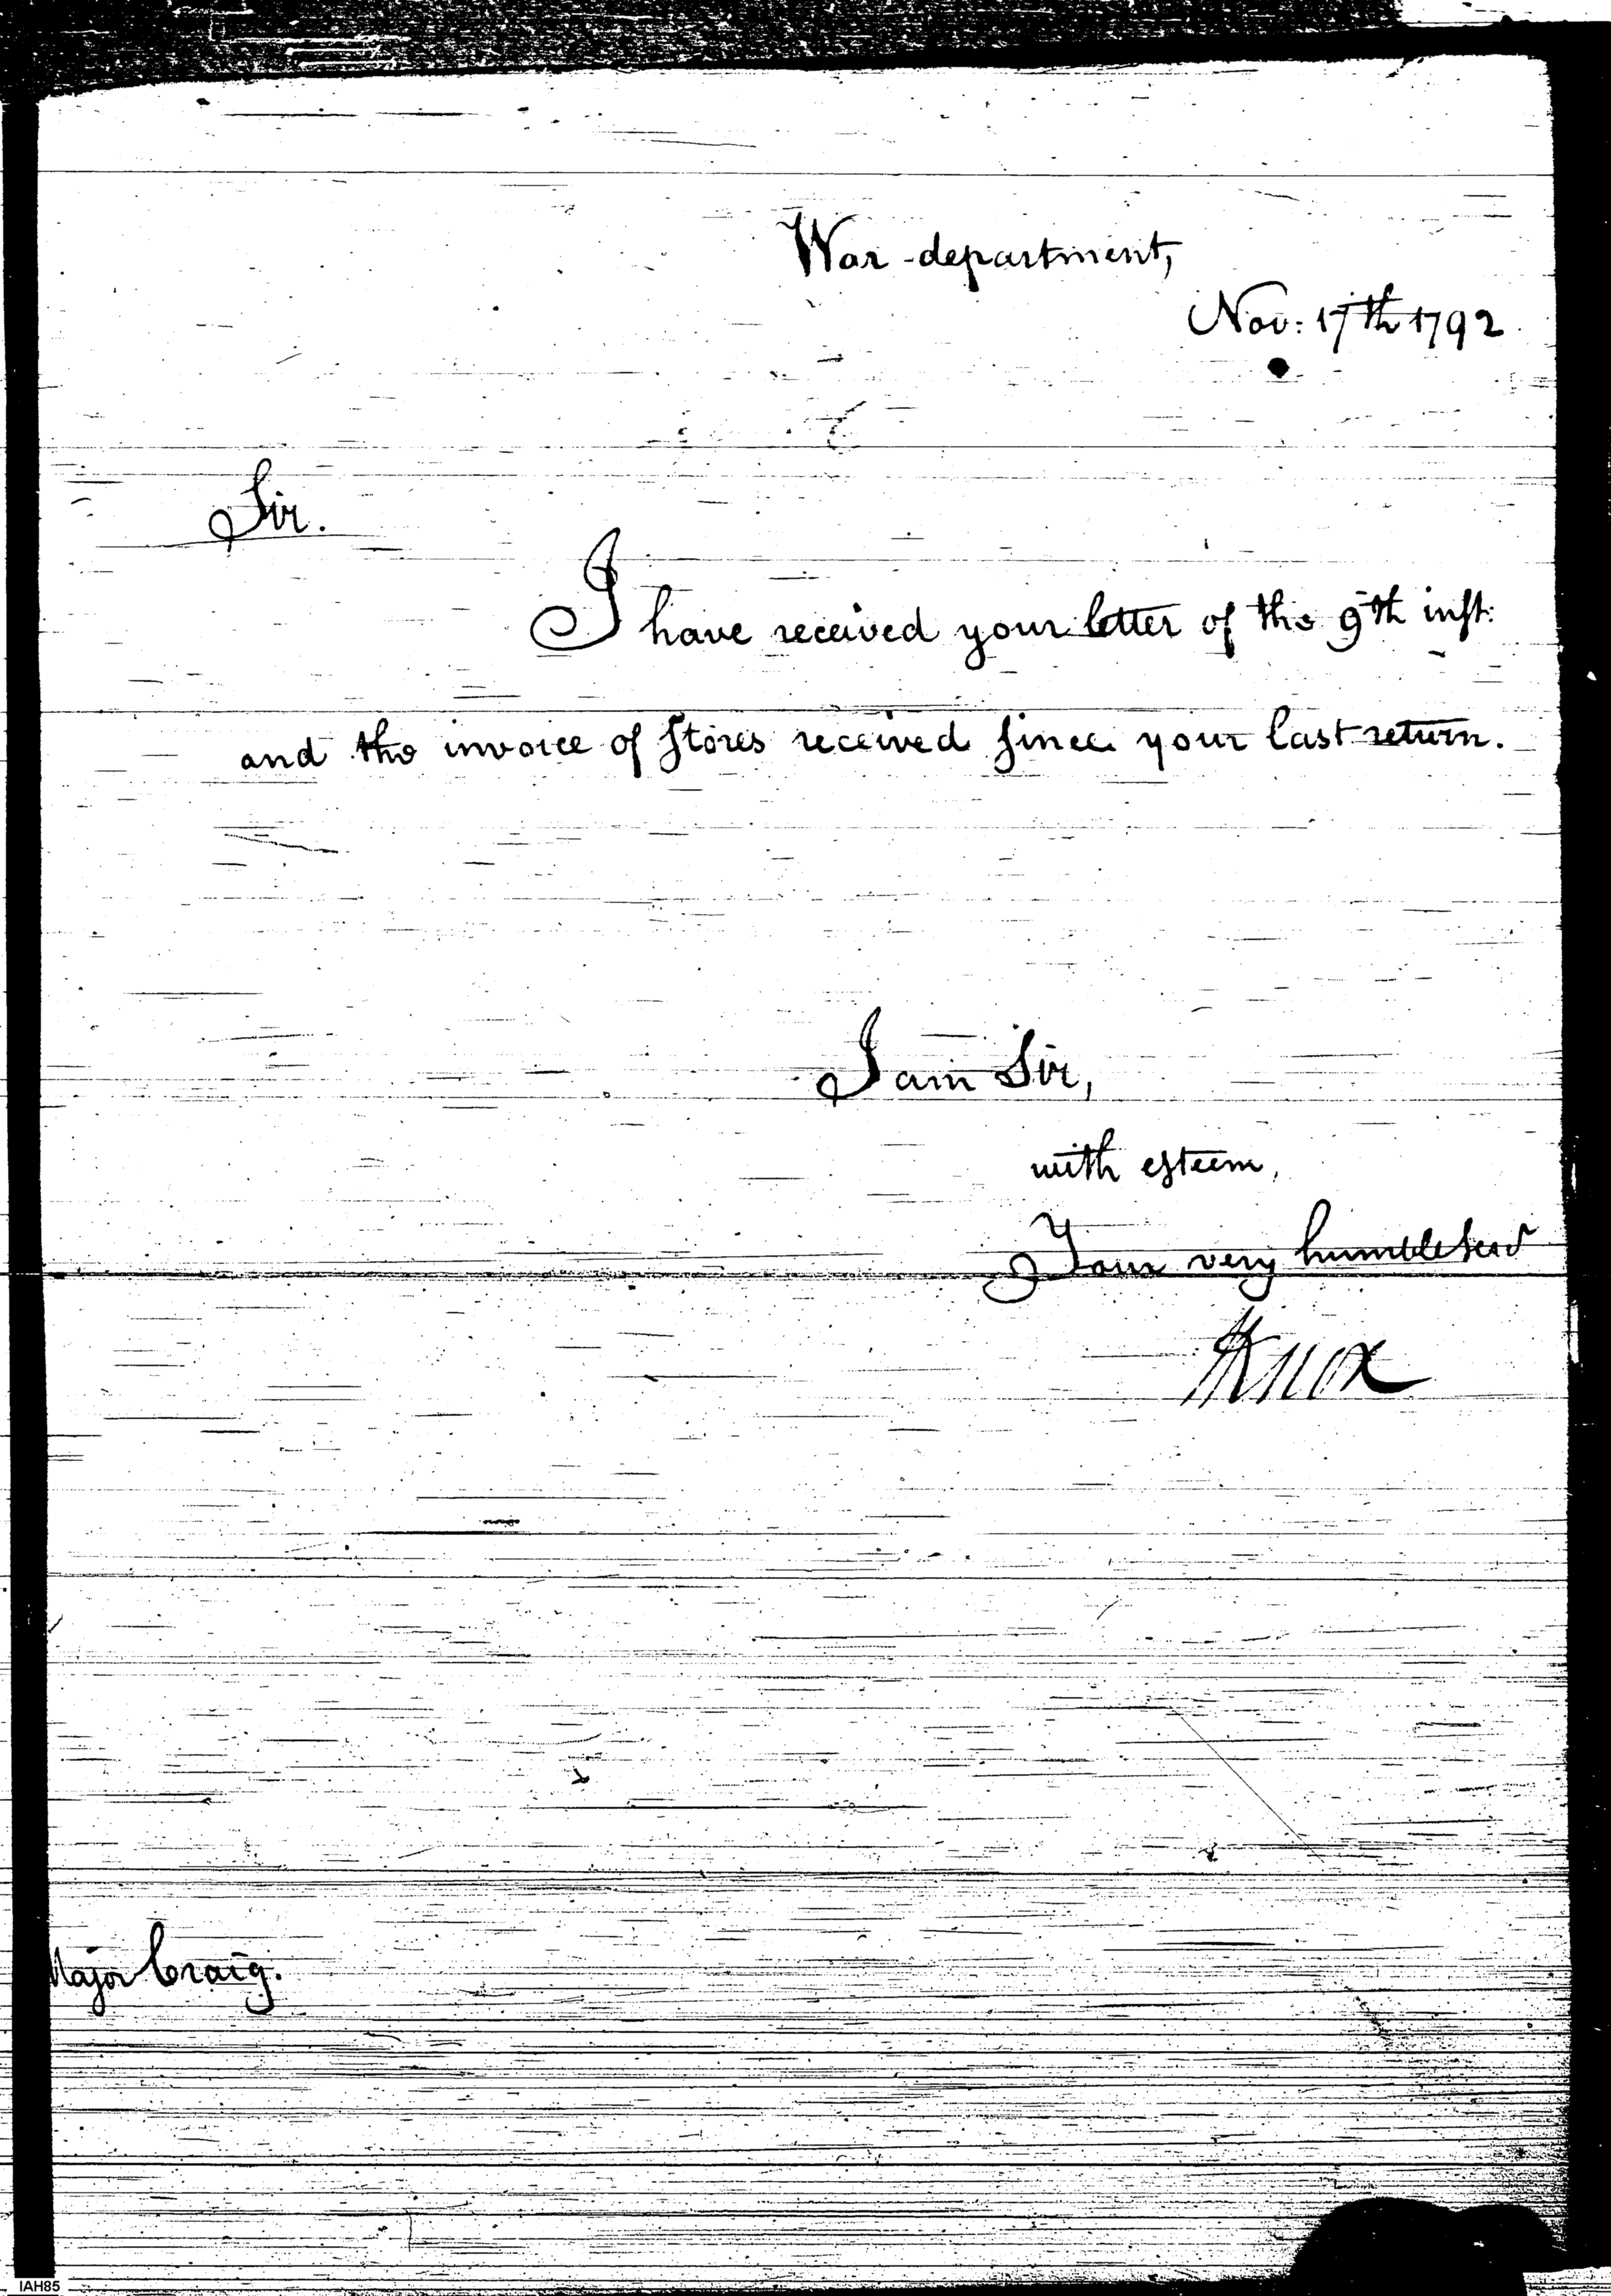 War-department,
Nov: 17th 1792
Sir.
I have received your letter of the 9th inst:
and the invoice of Stores received since your last return.
I am Sir,
with esteem,
Your very humble serv
HKnox
Major Craig.
IAH85